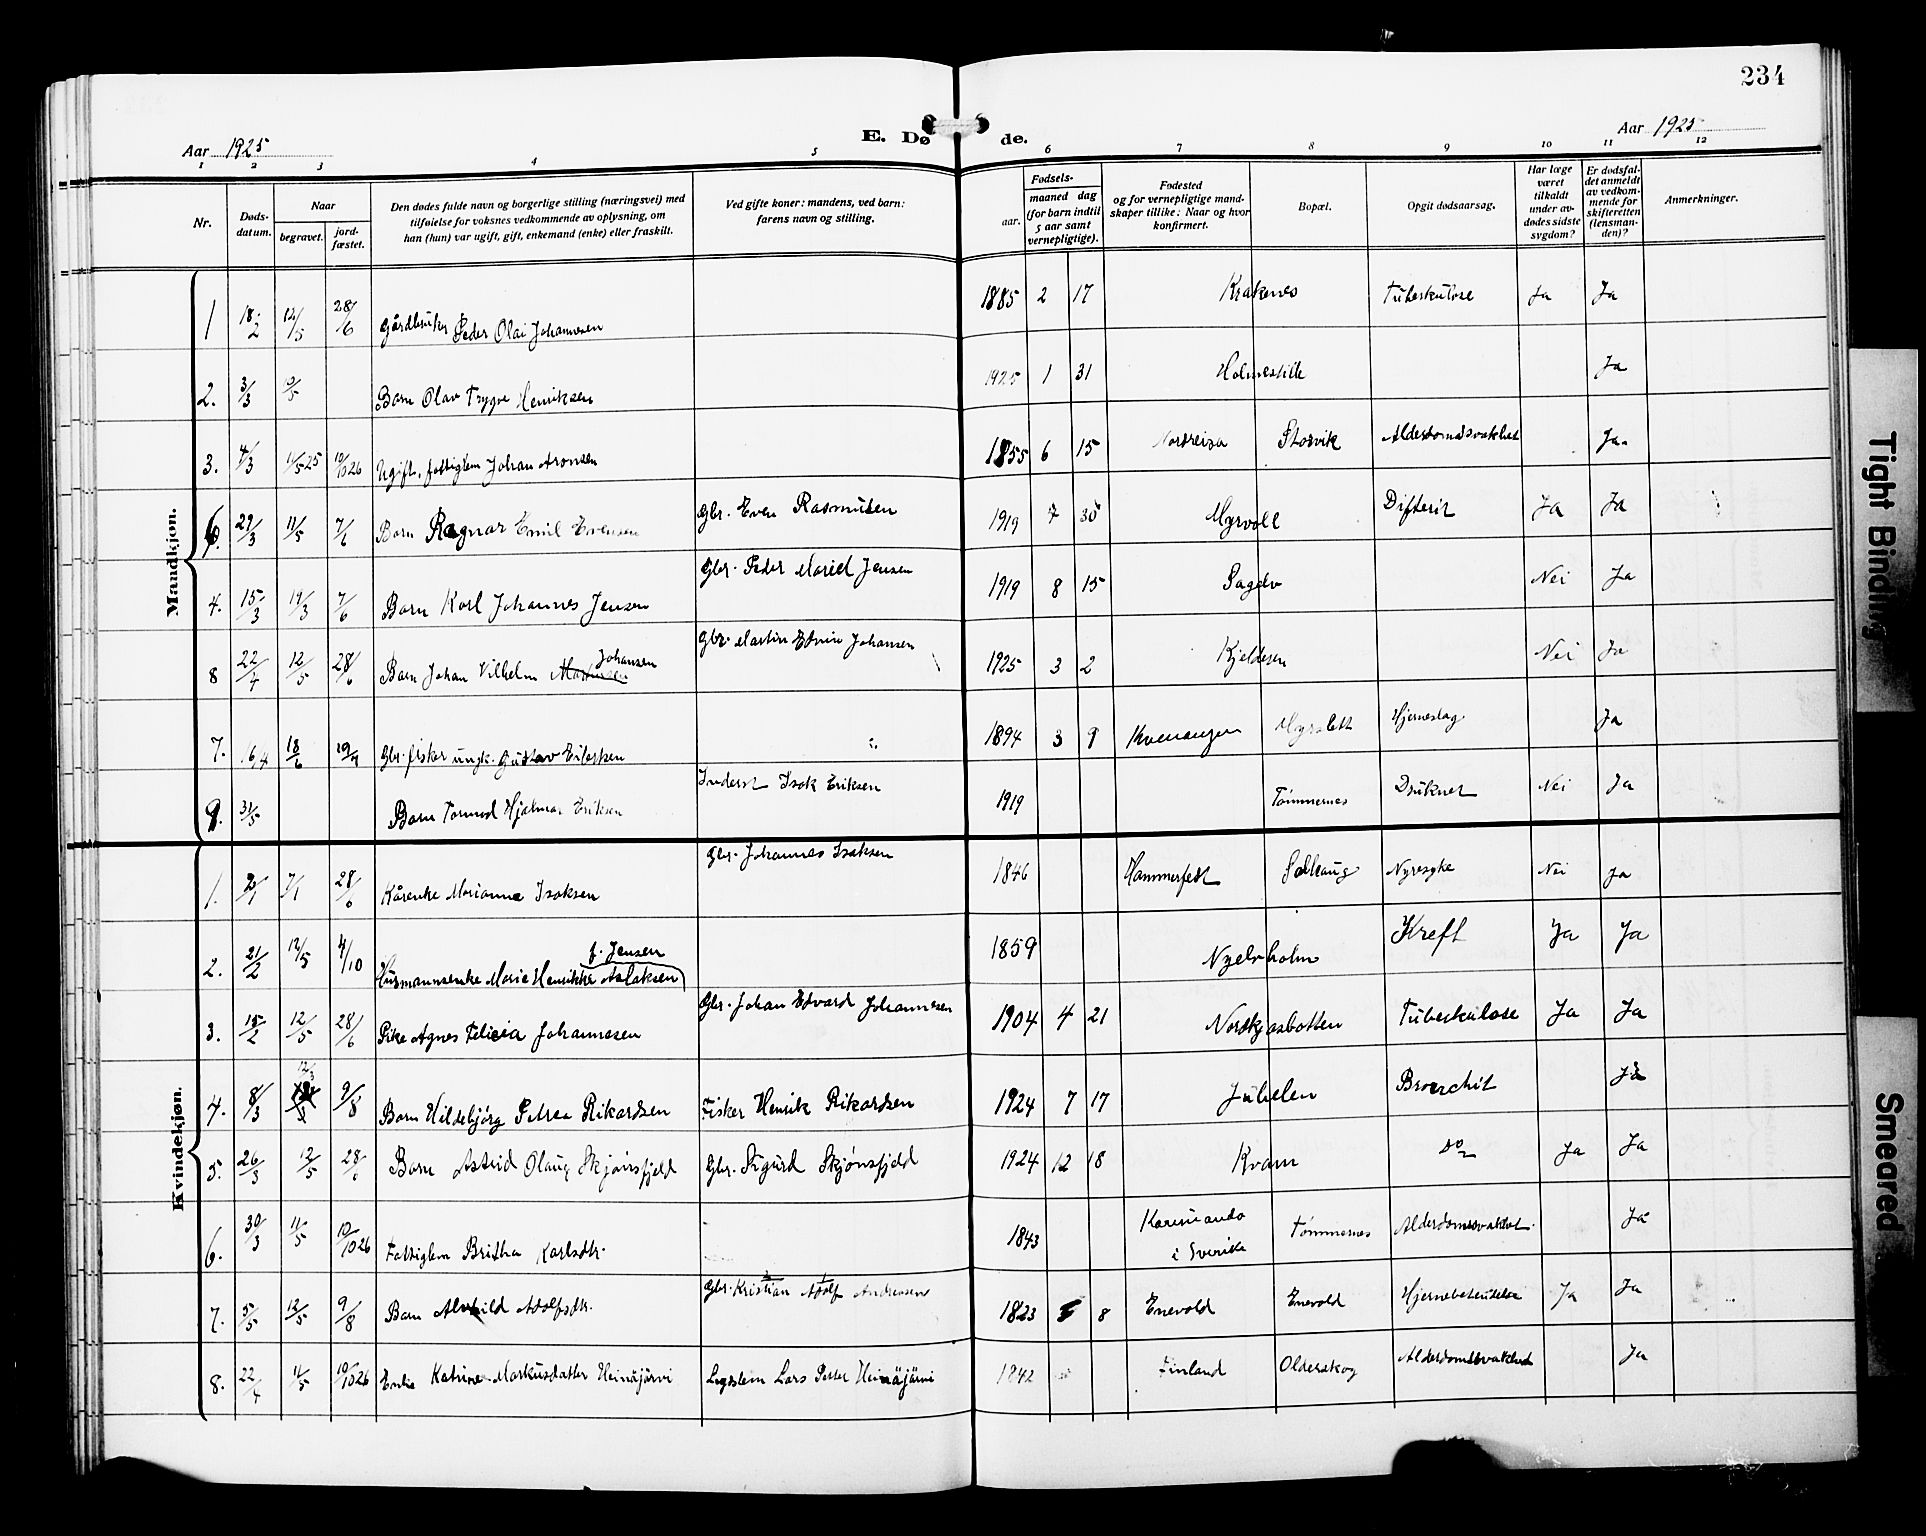 234
Aar 1925
E. Dø de.
Aar 1925
1 2 3 4 5 6 7 8 9 10 11 12
Nr.
Døds-
datum.
Naar
begravet.
jord-
fæstet.
Den dødes fulde navn og borgerlige stilling (næringsvei) med
tilføielse for voksnes vedkommende av oplysning, om
han (hun) var ugift, gift, enkemand (enke) eller fraskilt.
Ved gifte koner: mandens, ved barn:
farens navn og stilling.
Fødsels-
aar.
maaned dag
(for barn indtil
5 aar samt
vernepligtige).
Fødested
og for vernepligtige mand-
skaper tillike: Naar og hvor
konfirmert.
Bopæl.
Opgit dødsaarsag.
Har læge
været
tilkaldt
under av-
dødes sidste
sygdom?
Er dødsfal-
det anmeldt
av vedkom-
mende for
skifteretten
(lensman-
den)?
Anmerkninger.
Mandkjøn.
1 18/2 12/5 28/6 Gårdbruker Peder Olai Johannesen 1885 2 17 Krakenes Tuberkulose Ja Ja
2. 3/3 12/5 Barn Olav Trygve Henriksen 1925 1 31 Holmestille Ja
3. 4/3 11/5 25 10/10 26 Ugift. fattiglem Johan Aronsen 1855 6 15 Nordreisa Storvik Alderdomssvakhet Ja.
6. 29/3 11/5 7/6 Barn Ragnar Emil Evensen Gbr. Even Rasmusen 1919 7 30 Myrvoll Difterit Ja Ja
4. 15/3 19/3 7/6 Barn Karl Johannes Jensen Gbr. Peder Mariel Jensen 1919 8 15 Sagelv Nei Ja
8 22/4 12/5 28/6 Barn Johan Vilhelm Johansen Gbr. Martin Edvin Johansen 1925 3 2 Kjeldesen Nei Ja
7. 16/4 18/6 19/7 Gbr. fisker ungk. Gustav Eilertsen 1894 3 9 Kvenangen Myrslett Hjerneslag Ja
9. 31/5 Barn Tormod Hjalmar Eriksen Inderst Isak Eriksen 1919 Tømmernes Druknet Nei Ja
Kvindekjøn.
1. 2/1 7/1 28/6 Kårenke Marianne Isaksen Gbr. Johannes Isaksen 1846 Hammerfest Solhaug Nyresyke Nei Ja
2. 21/2 12/5 4/10 Husmannsenke Marie Henrikke Aslaksen f. Jensen 1859 Nyelvholm Kreft Ja Ja
3. 15/2 12/5 28/6 Pike Agnes Felicia Johannesen Gbr. Johan Edvard Johannesen 1904 4 21 Nordkjosbotten Tuberkulose Ja Ja
4. 8/3 12/3 9/8 Barn Hildebjörg Petrea Rikardsen Fisker Henrik Rikardsen 1924 7 17 Jubelen Bronchit Ja
5. 26/3 12/5 28/6 Barn Astrid Olaug Skjönsfjeld Gbr. Sigurd Skjönsfjeld 1924 12 18 Kvam do Ja Ja
6. 30/3 11/5 10/10 26 Fattiglem Britha Karlsdtr. 1843 Karesuando i Sverike Tømmernes Alderdomssvakhet. Ja
7. 5/5 12/5 9/8 Barn Alvhild Adolfsdtr. Gbr. Kristian Adolf Andreasen 1823 5 8 Enevold Enevold Hjernebetendelse Ja Ja
8. 22/4 11/5 10/10 26 Enke Katrine Markusdatter Heinäjärvi Legdslem Lars Petter Heinäjärvi 1842 Finland Olderskog Alderdomssvakhet Ja
Tight Binding
Smeared